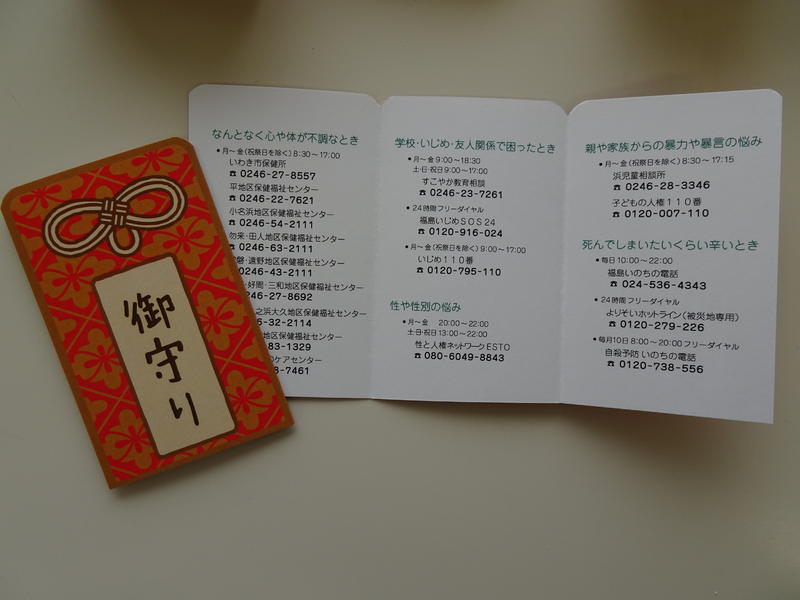 御守り
なんとなく心や体が不調なとき
•月～金(祝祭日を除く) 8:30～17:00
いわき市保健所
☎ 0246-27-8557
平地区保健福祉センター
☎ 0246-22-7621
小名浜地区保健福祉センター
☎ 0246-54-2111
勿来・田人地区保健福祉センター
☎ 0246-63-2111
磐・遠野地区保健福祉センター
0246-43-2111
・好間・三和地区保健福祉センター
246-27-8692
之浜大久地区保健福祉センター
6-32-2114
地区保健福祉センター
83-1329
のケアセンター
8-7461
学校・いじめ・友人関係で困ったとき
•月～金 9:00～18:30
土・日・祝日 9:00～17:00
すこやか教育相談
☎ 0246-23-7261
•24時間フリーダイヤル
福島いじめSOS24
☎ 0120-916-024
•月～金(祝祭日を除く) 9:00～17:00
いじめ110番
☎ 0120-795-110
性や性別の悩み
•月～金 20:00～22:00
土・日・祝日 13:00～22:00
性と人権ネットワークESTO
☎ 080-6049-8843
親や家族からの暴力や暴言の悩み
•月～金(祝祭日を除く) 8:30～17:15
浜児童相談所
☎ 0246-28-3346
子どもの人権110番
☎ 0120-007-110
死んでしまいたいくらい辛いとき
•毎日 10:00～22:00
福島いのちの電話
☎ 024-536-4343
•24時間フリーダイヤル
よりそいホットライン(被災地専用)
☎ 0120-279-226
•毎月10日 8:00～20:00 フリーダイヤル
自殺予防 いのちの電話
☎ 0120-738-556